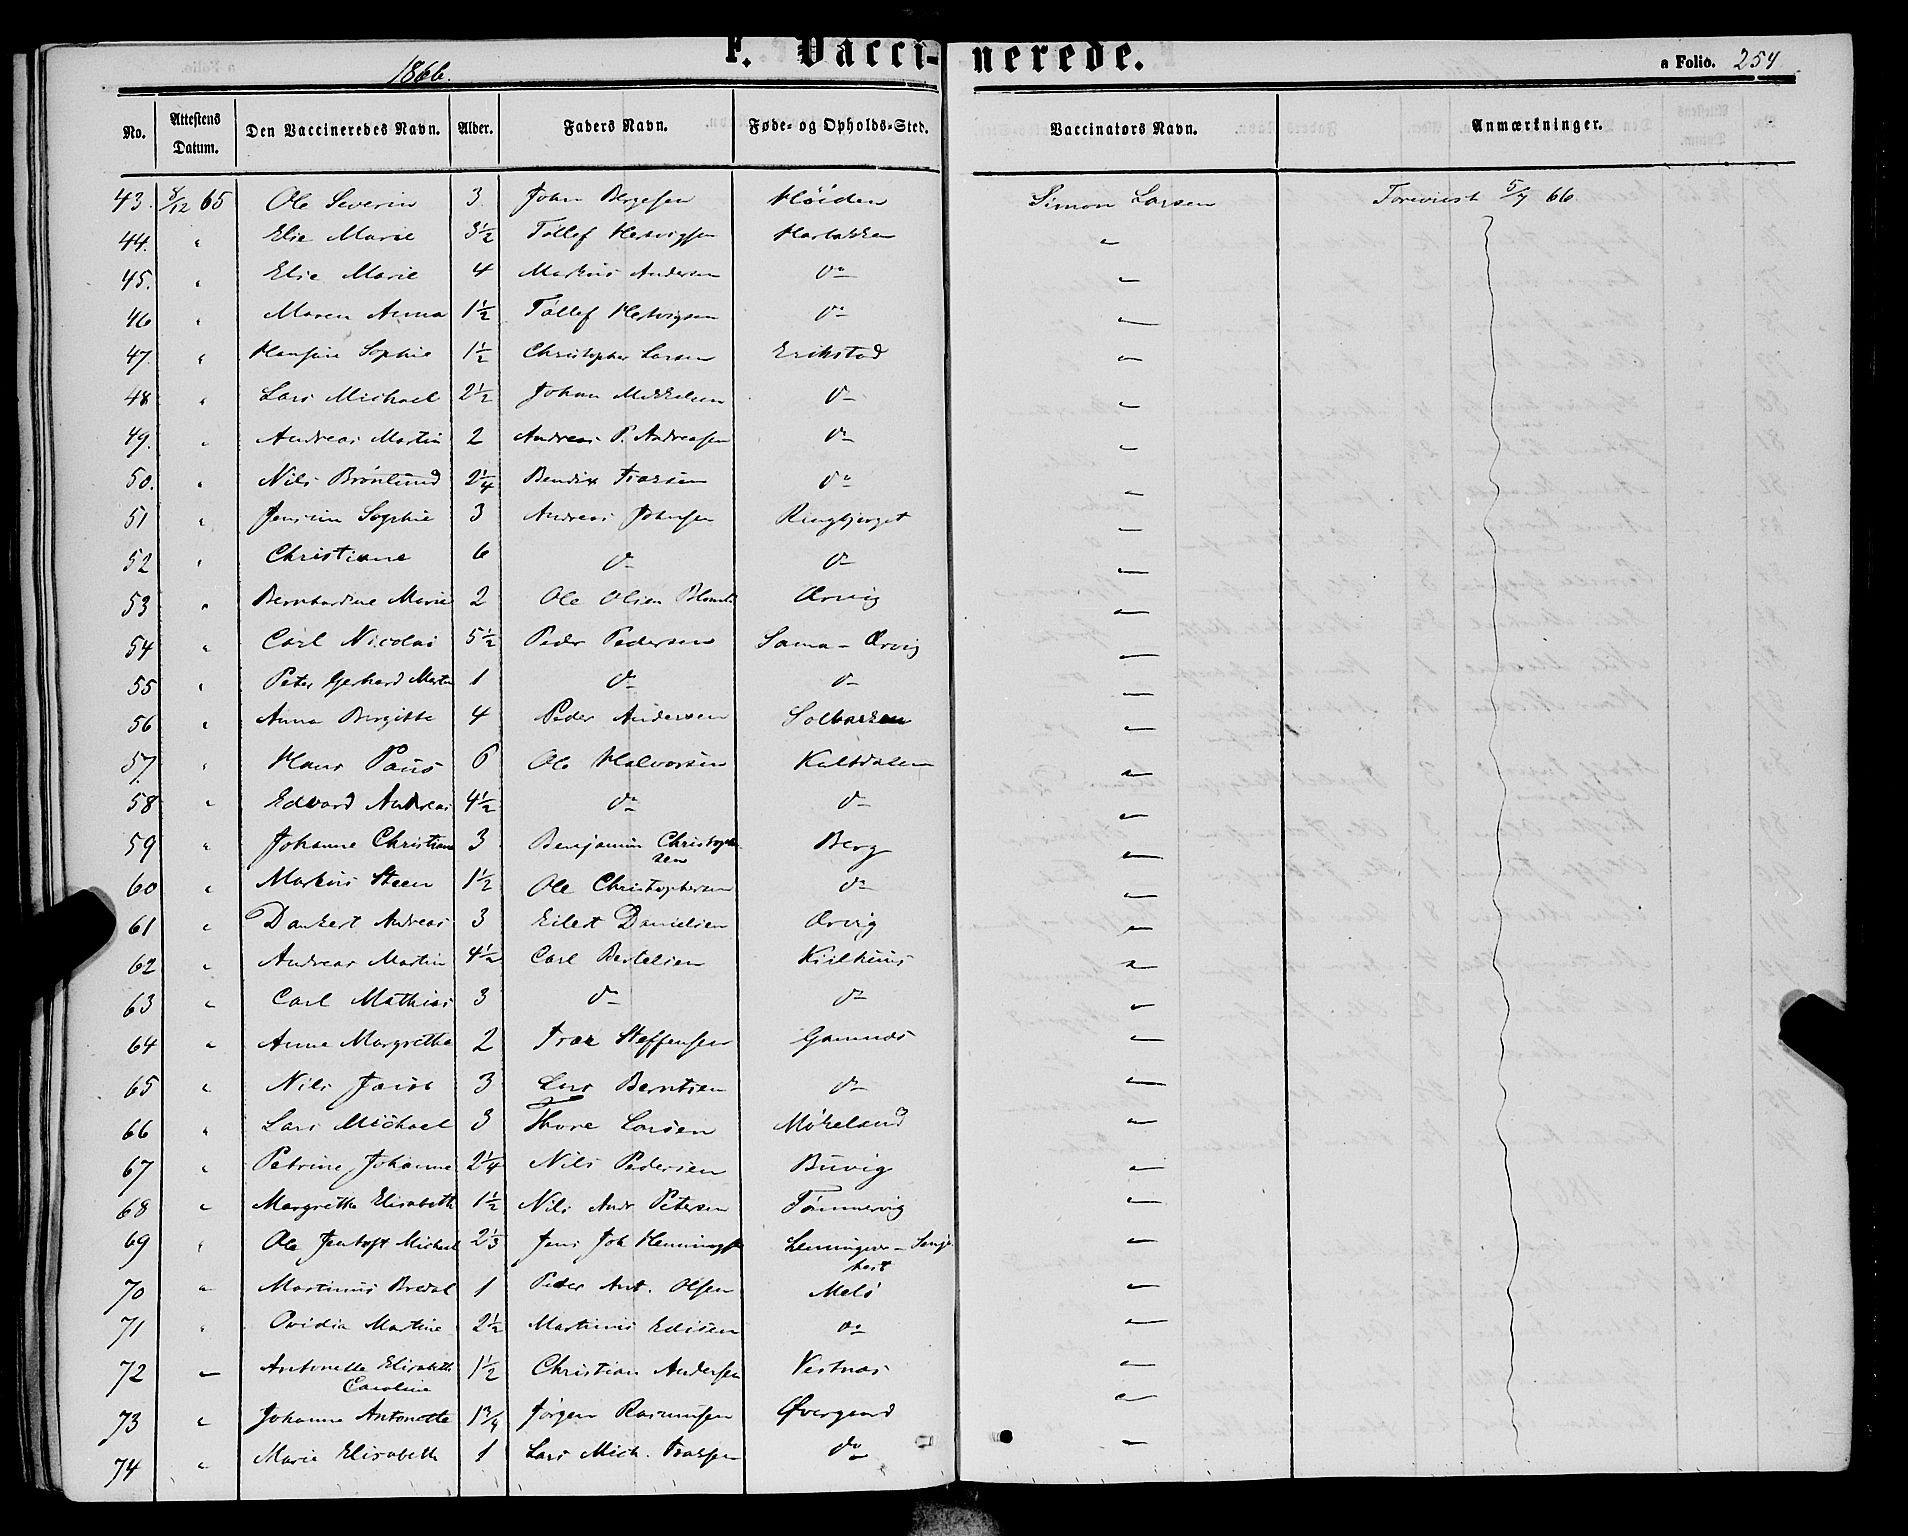 1866.
F. Vaccinerede.
a Folio. 254
No. Attestens Datum. Den Vaccineredes Navn. Alder. Faders Navn. Føde- og Opholds-Sted. Vaccinators Navn. Anmærkninger.
43. 8/12 65 Ole Severin 3 Johan Bergesen Høiden Simon Larsen Foreviist 5/7 66
44. " Elie Marie 3½ Tollef Hertvigsen Harbakken "
45. " Elie Marie 4 Markus Andersen do "
46 " Maren Anna 1½ Tollef Hertvigsen do "
47. " Hansine Sophie 1½ Christopher Larsen Erikstad "
48 " Lars Michael 2½ Johan Mikkelsen do "
49. " Andreas Martin 2 Andreas P. Andreasen do "
50. " Nils Brønlund 2¼ Bendix Trasen do "
51 " Jensine Sophie 3 Andreas Johnsen Ringbjerget "
52 " Christiane 6 do do "
53 " Bernhardine Marie 2 Ole Olsen Ørvig "
54 " Carl Nicolai 5½ Peder Pedersen Sama - Ørvig "
55 " Peter Gerhard Martin 1 do do "
56 " Anna Bergitte 4 Peder Andersen Solbakken "
57. " Hans Paus 6 Ole Halvorsen Kaltdalen "
58 " Edvard Andreas 4½ do do "
59 " Johanne Christiane 3 Benjamin Christophersen Berg "
60 " Markus Steen 1½ Ole Christophersen do "
61 " Dankert Andreas 3 Eilert Danielsen Ørvig "
62 " Andreas Martin 4½ Carl Bertelsen Kiilhuus "
63 " Carl Mathias 3 do do "
64 " Anne Margrethe 2 Steffensen "
65 " Nils Jacob 3 Lars Berntsen do "
66 " Lars Michael 3 Thore Larsen Møkeland "
67 " Petrine Johanne 2¼ Nils Pedersen Buvig "
68 " Margrethe Elisabeth 1½ Nils Andr Petersen Tømmervig "
69 " Ole Jentoft Michael 2⅓ Jens Joh Henningsen "
70 " Martinus Bredal 1 Peder Ant. Olsen Melø "
71 " Ovidia Martine 2½ Martinus Edisen do "
72 " Antonette Elisabeth Caroline 1½ Christian Andersen Vestnes "
73 " Johanne Antonette 1¾ Jørgen Rasmussen Øvergaard "
74 " Marie Elisabeth 1 Lars Mich. Trasen do "